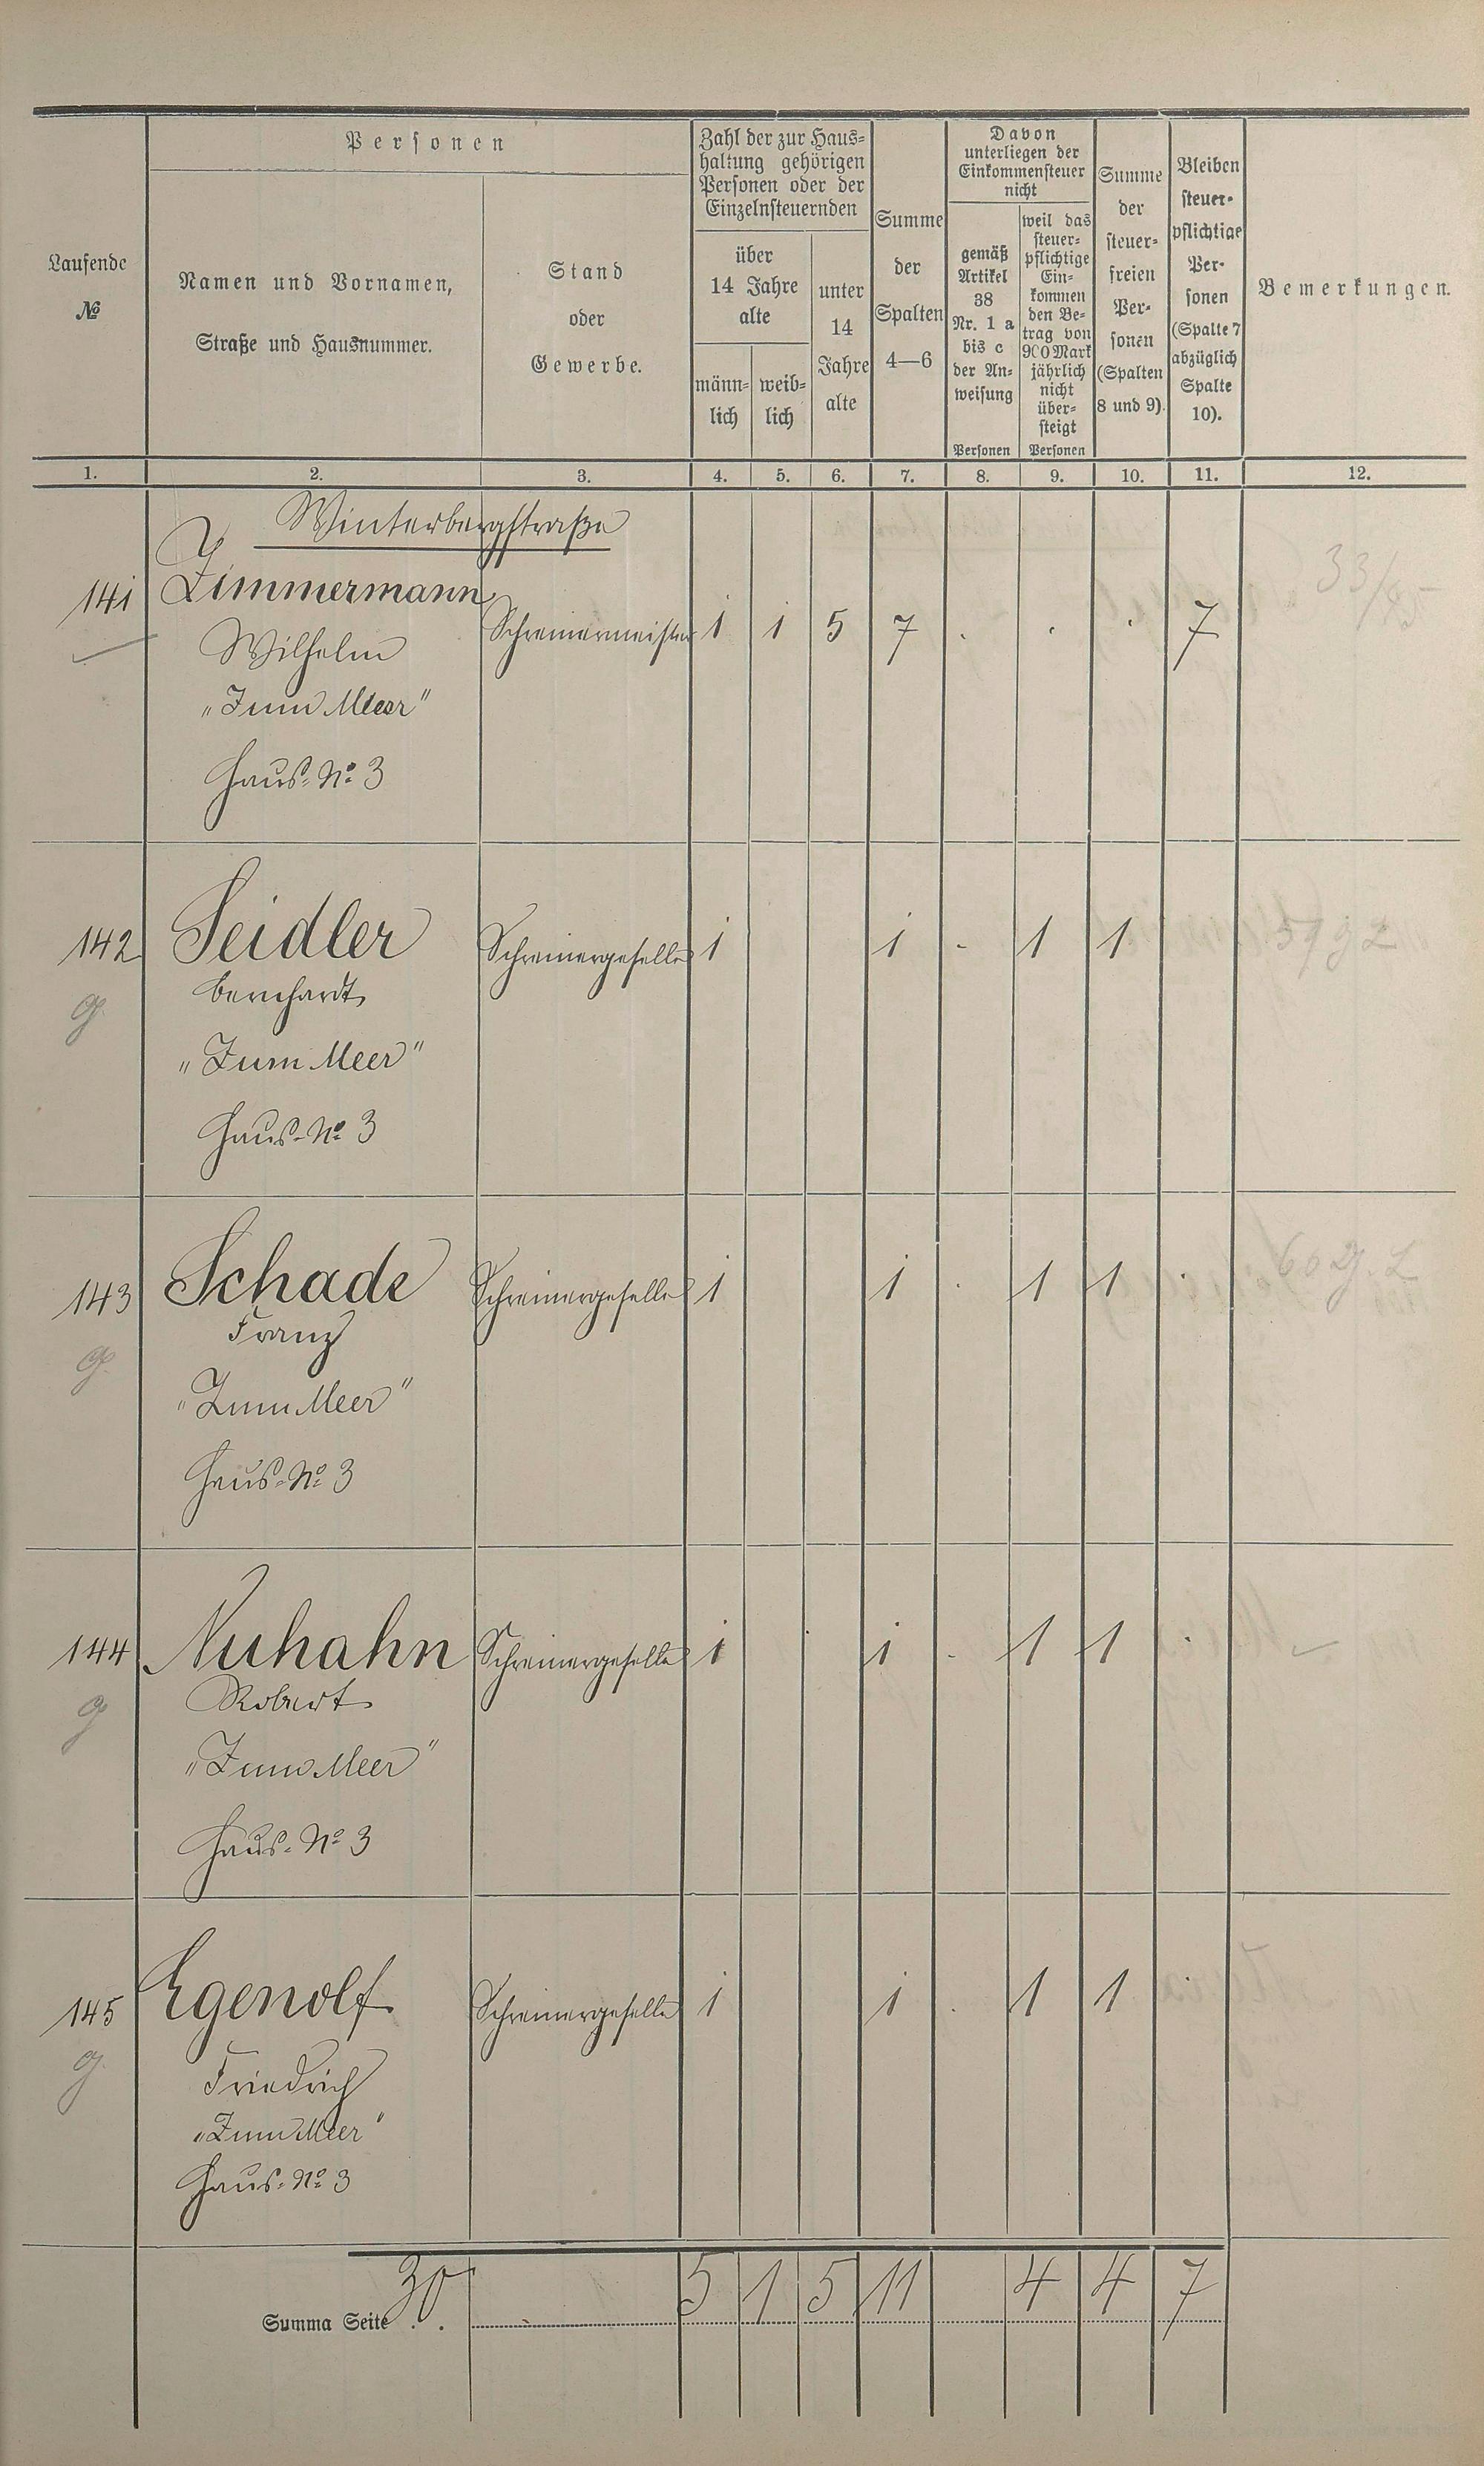 Laufende
№
Personen
Namen und Vornamen,
Straße und Hausnummer.
Stand
oder
Gewerbe.
Zahl der zur Haus-
haltung gehörigen
Personen oder der
Einzelnsteuernden
über
14 Jahre
alte
männ-
lich
weib-
lich
unter
14
Jahre
alte
Summe
der
Spalten
4—6
Davon
unterliegen der
Einkommensteuer
nicht
gemäß
Artikel
38
Nr. 1 a
bis c
der An-
weisung
Personen
weil das
steuer-
pflichtige
Ein-
kommen
den Be-
trag von
900 Mark
jährlich
nicht
über-
steigt
Personen
Summe
der
steuer-
freien
Per-
sonen
(Spalten
8 und 9).
Bleiben
steuer-
pflichtige
Per-
sonen
(Spalte 7
abzüglich
Spalte
10).
Bemerkungen.
1. 2. 3. 4. 5. 6. 7. 8. 9. 10. 11. 12.
Winterbergstraße
141 Zimmermann Schreinermeister 1 1 5 7 . . . 7 33/45
Wilhelm
"Zum Meer"
Haus-No 3
142 Seidler Schreinergeselle 1 1 - 1 1 59 g 2
g. Bernhardt
"Zum Meer"
Haus-No 3
143 Schade Schreinergeselle 1 1 . 1 1 . 60 g. 2
g. Franz
"Zum Meer"
Haus-No 3
144 Nuhahn Schreinergeselle 1 1 - 1 1 .
g Robert
"Zum Meer"
Haus-No 3
145 Egenolf Schreinergeselle 1 1 . 1 1 .
g. Friedrich
"Zum Meer"
Haus-No 3
Summa Seite 30 5 1 5 11 4 4 7